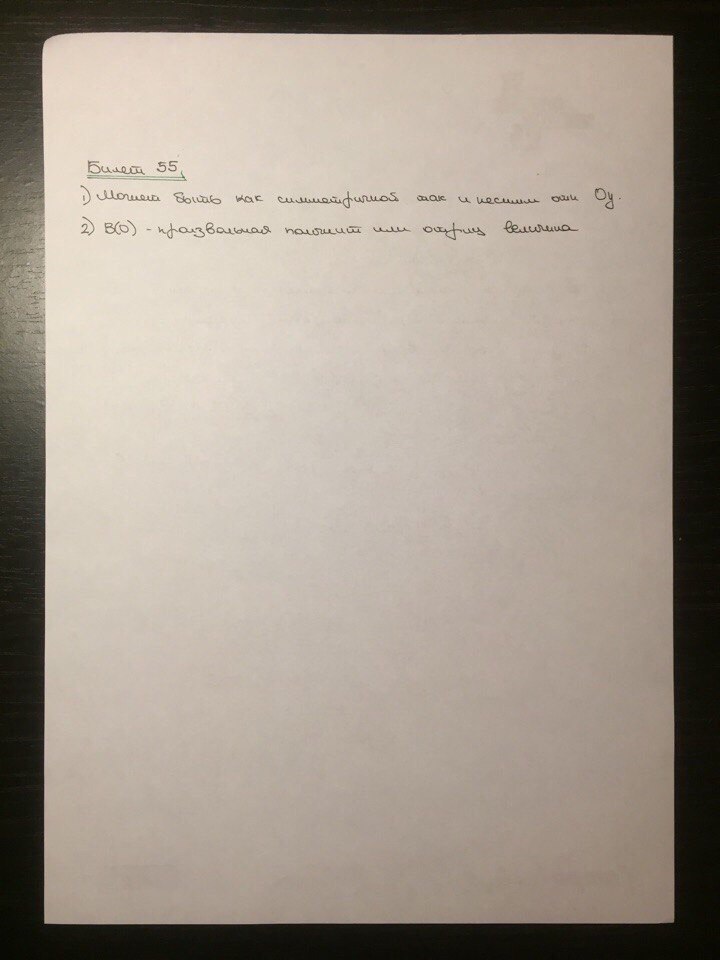 Билет 55.
1) Может быть как симметричной так и несимм отн Oy.
2) B(0) - произвольная полжит или отриц величина